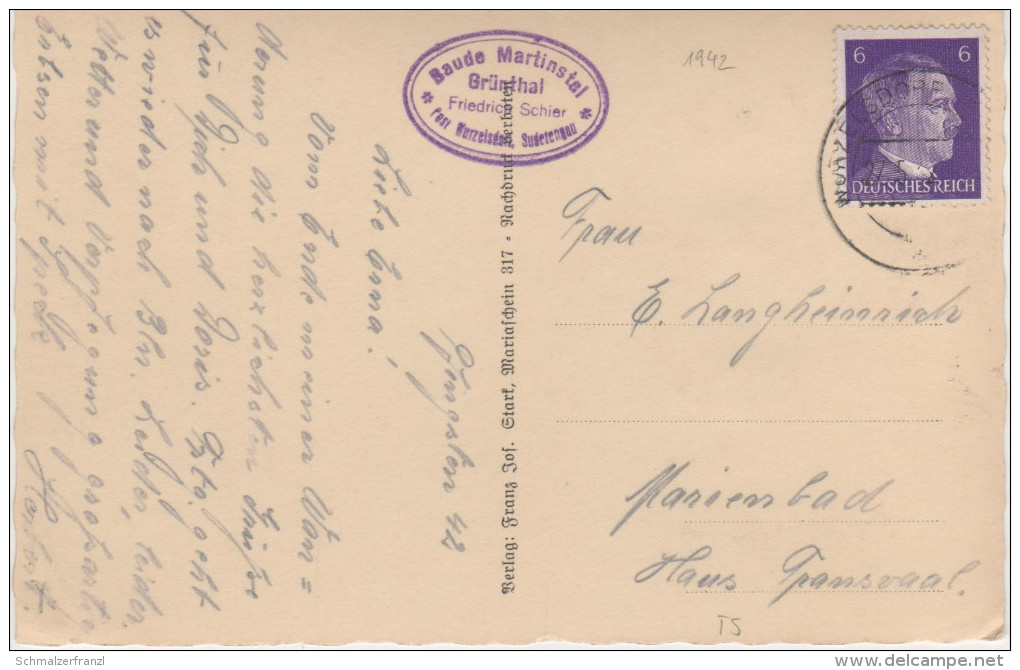 1942
Baude Martinstal
Grünthal
Friedrich Schier
Post Wurzelsdorf, Sudetengau
6 6
DEUTSCHES REICH
WURZELSDORF
Pfingsten 42
Liebe Erna!
Vom Ende meiner Wan=
derung die herzlichsten Grüße
für Dich und Doris. Gto. geht
es wieder nach Bln. Leider, leider
Wetter und Verpflegung
mit
Herbert.
Verlag: Franz Jos. Stark, Mariaschein 317 - Nachdruck verboten
Frau
E. Langheinrich
Marienbad
Haus Transvaal.
TS
©Schmalzerfranzl
www.delcampe.net